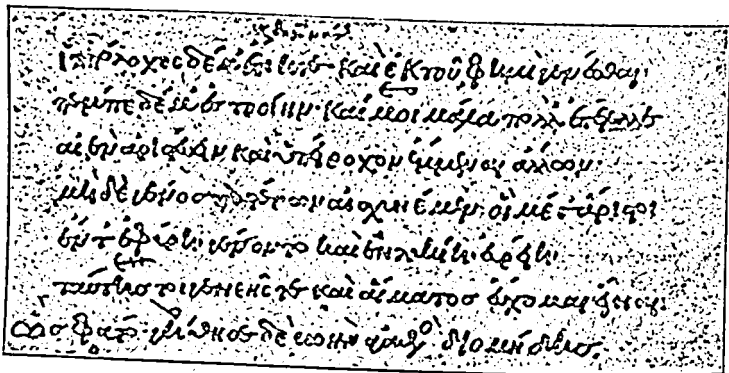 ἱππόλοχος δέ μ' ἔτικτε· καὶ ἐκ τοῦ φημὶ γενέσθαι·
πέμπε δέ μ' ἐς τροίην· καί μοι μάλα πόλλ' ἐπέτελλεν
αἰὲν ἀριστεύειν καὶ ὑπείροχον ἔμμεναι ἄλλων·
μηδὲ γένος πατέρων αἰσχυνέμεν· οἳ μέγ' ἄριστοι
ἔν τ' ἐφύρῃ ἐγένοντο καὶ ἐν λυκίῃ εὐρείῃ·
ταύτης τοι γενεῆς τε καὶ αἵματος εὔχομαι εἶναι·
ὣς φάτο· γήθησεν δὲ βοὴν ἀγαθὸς διομήδης.